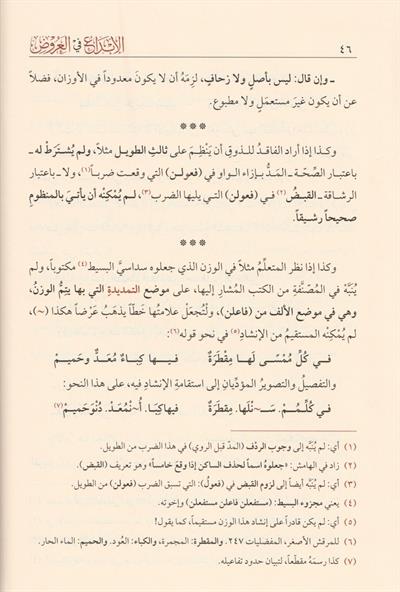 ٤٦ الإبداع في العروض
ـ وإن قال: ليس بأصلٍ ولا زحافٍ، لزمَهُ أن لا يكونَ معدوداً في الأوزان، فضلاً
عن أن يكون غيرَ مستعملٍ ولا مطبوع.
***
وكذا إذا أراد الفاقدُ للذوق أن يَنْظِمَ على ثالثِ الطويل مثلاً، ولم يُشتَرطْ له ـ
باعتبار الصِّحّة ـ المَدُّ بإزاء الواو في (فعولن) التي وقعت ضرباً(١)، ولا ـ باعتبار
الرشاقة ـ القبضُ(٢) في (فعولن) التي يليها الضرب(٣)، لم يُمْكِنْه أن يأتيَ بالمنظومِ
صحيحاً رشيقاً.
***
وكذا إذا نظر المتعلِّمُ مثلاً في الوزن الذي جعلوه سداسيَّ البسيط(٤) مكتوباً، ولم
يُنَبَّه في المُصنَّفةِ من الكتب المُشارِ إليها، على موضع التمديدةِ التي بها يتِمُّ الوزنُ،
وهي في موضع الألف من (فاعلن)، ولْتُجعَلْ علامتُها خطّاً يذهبُ عَرْضاً هكذا (~)،
لم يُمْكِنْه المستقيمُ من الإنشادِ(٥) في نحو قوله(٦):
في كُلِّ مُمْسًى لَها مِقْطَرَةٌ فيها كِباءٌ مُعَدٌّ وحَميمْ
والتفصيلُ والتصويرُ المؤدِّيانِ إلى استقامةِ الإنشادِ فيه، على هذا النحو:
في كُلِّمُمْـ. سَـ~نْلَها. مِقْطَرَةٌ فيهاكِبَا. أُ~نْمُعَدْ. دُنْوَحَمِيمْ(٧)
(١) أي: لم يُنَبِّه إلى وجوب الرِّدْف (المدّ قبل الروي) في هذا الضرب من الطويل.
(٢) زاد في الهامش: «جعلوهُ اسماً لحذف الساكن إذا وقعَ خامساً» وهو تعريف (القبض).
(٣) أي: لم يُنَبِّه أيضاً إلى لزوم القبض في (فعولُ): التي تسبق الضرب (فعولن) من الطويل.
(٤) يعني مجزوء البسيط: (مستفعلن فاعلن مستفعلن) وإخوته.
(٥) أي: لم يكن قادراً على إنشاد هذا الوزن مستقيماً، كما يقول!
(٦) للمرقش الأصغر، المفضليات ٢٤٧. والمقطرة: المجمرة، والكباء: العُود. والحميم: الماء الحار.
(٧) كذا رسمَهُ مقطّعاً، لتبيان حدود تفاعيله.